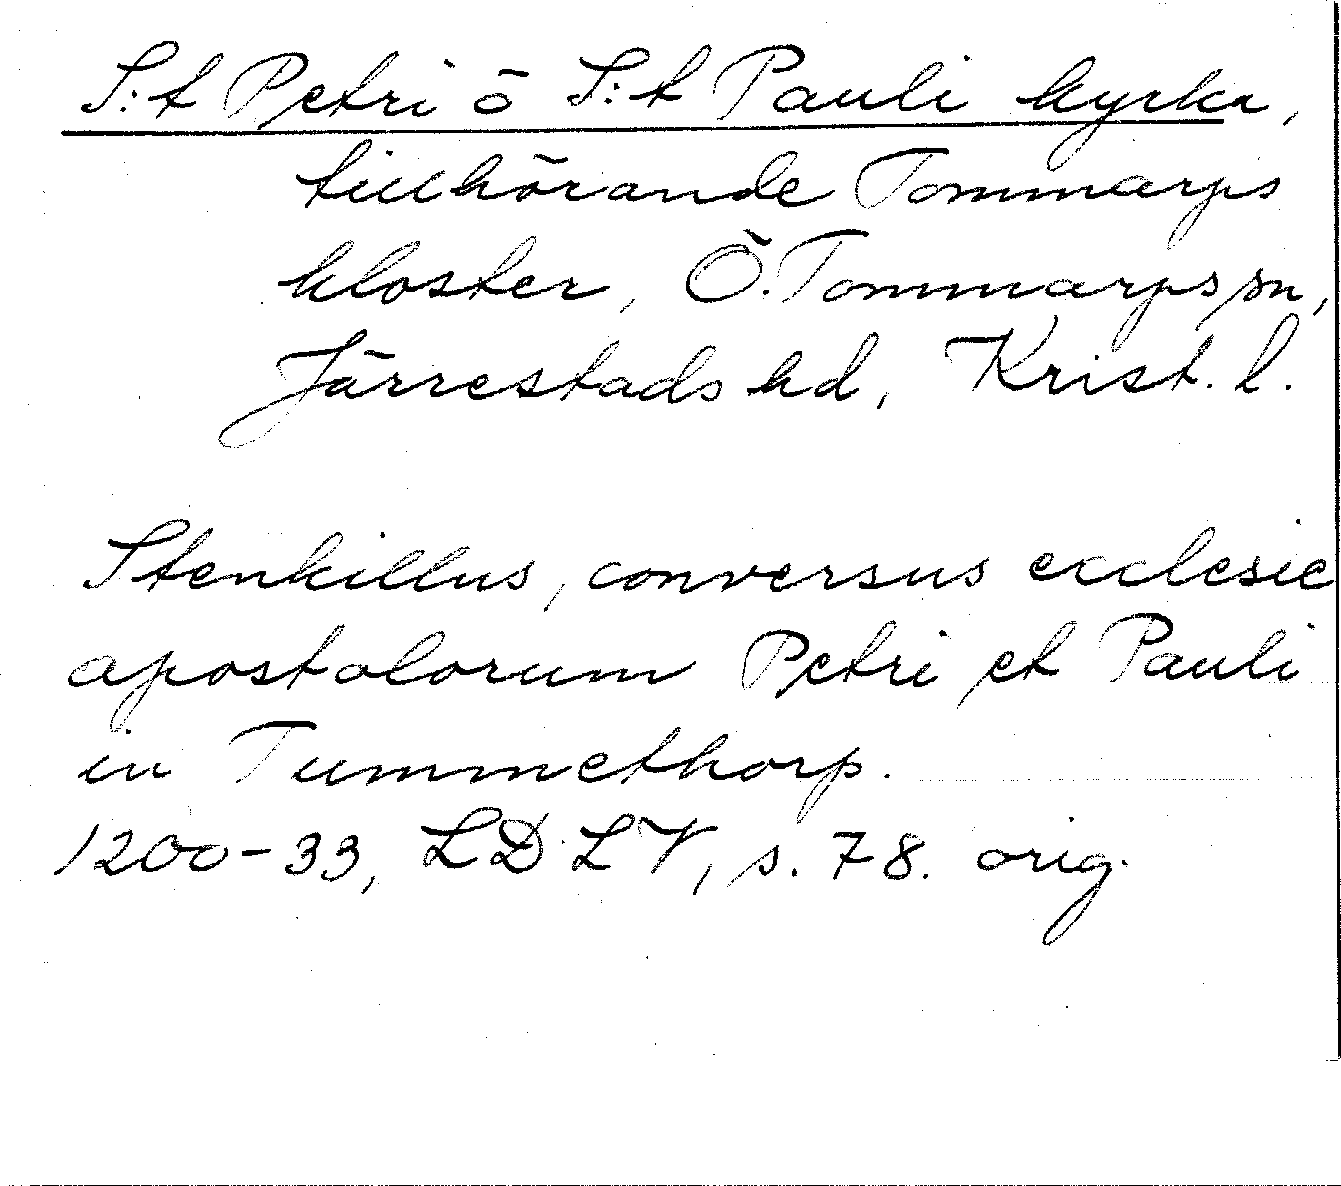 S:t Petri o S:t Pauli kyrka,
tillhörande Tommarps
kloster, Ö. Tommarps sn,
Järrestads hd, Krist. l.
Stenkillus, conversus ecclesie
apostolorum Petri et Pauli
in Tummethorp.
1200-33, LD LV, s. 78. orig.